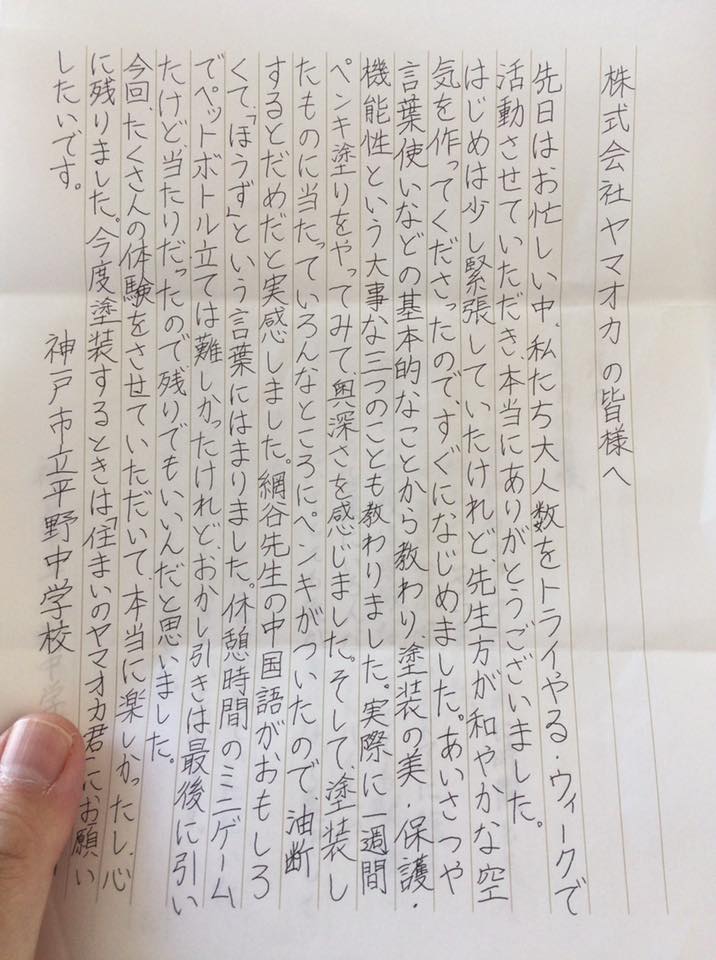 株式会社ヤマオカの皆様へ
先日はお忙しい中、私たち大人数をトライやる・ウィークで
活動させていただき、本当にありがとうございました。
はじめは少し緊張していたけれど、先生方が和やかな空
気を作ってくださったので、すぐになじめました。あいさつや
言葉使いなどの基本的なことから教わり、塗装の美・保護・
機能性という大事な三つのことも教わりました。実際に一週間
ペンキ塗りをやってみて、奥深さを感じました。そして、塗装し
たものに当たっていろんなところにペンキがついたので、油断
するとだめだと実感しました。網谷先生の中国語がおもしろ
くて、「ほうず」という言葉にはまりました。休憩時間のミニゲーム
でペットボトル立ては難しかったけれど、おかし引きは最後に引い
たけど、当たりだったので、残りでもいいんだと思いました。
今回、たくさんの体験をさせていただいて、本当に楽しかったし、心
に残りました。今度塗装するときは「住まいのヤマオカ君」にお願い
したいです。
神戸市立平野中学校